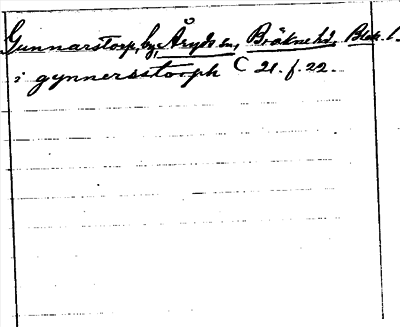 Gunnarstorp, by, Åryds sn, Bräkne hd, Blek. l.
i gynnersstorph C 21. f. 22.